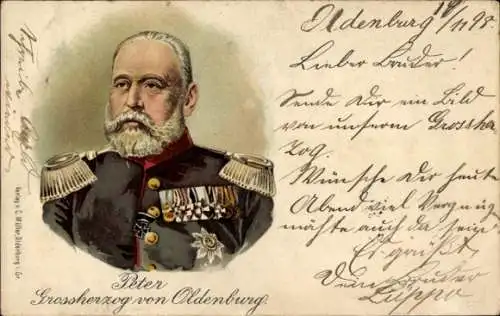 Oldenburg 19/11 98.
Lieber Bruder!
Sende Dir ein Bild
von unserm Grosshe
zog.
Wünsche Dir heute
Abend viel Vergnüg
möchte auch da sein.
Es grüßt
Dein Bruder
Lüppo
Peter
Grossherzog von Oldenburg.